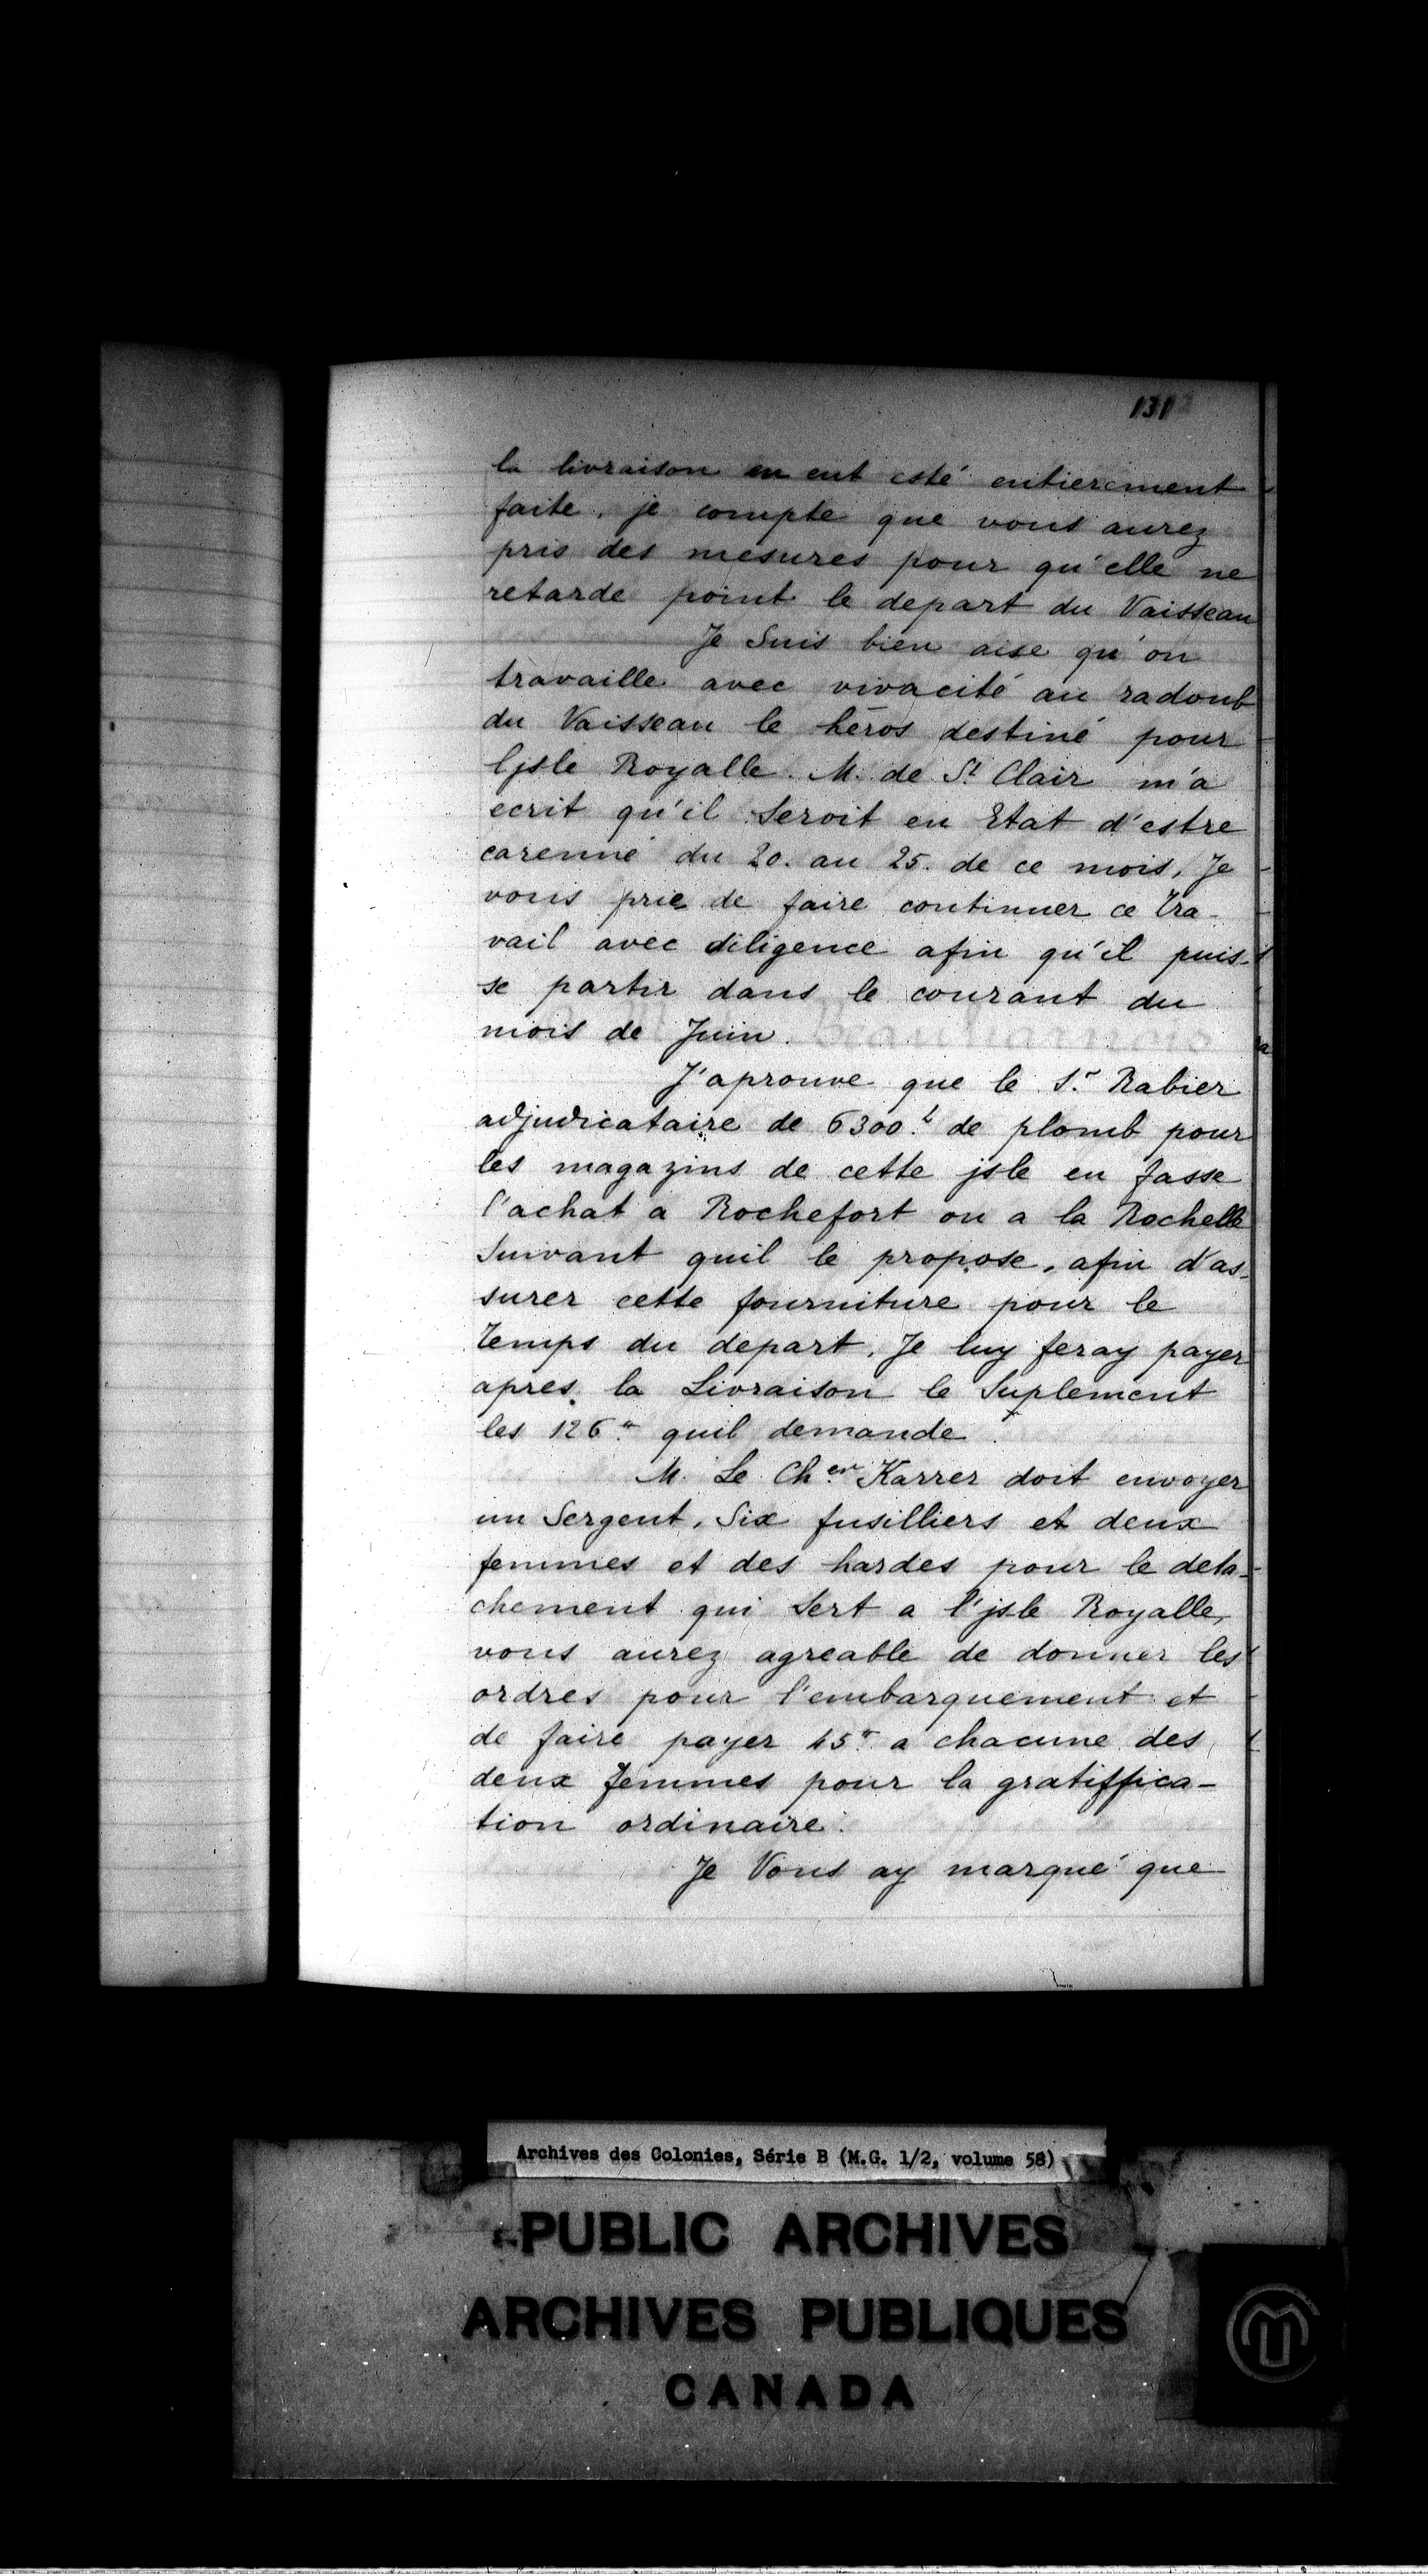 131
la livraison en eut esté entierement
faite, je compte que vous aurez
pris des mesures pour qu'elle ne
retarde point le depart du Vaisseau
Je Suis bien aise qu'on
travaille avec vivacité au radoub
du Vaisseau le héros destiné pour
ljsle Royalle. M. de St Clair m'a
ecrit qu'il Seroit en Etat d'estre
carenné du 20. au 25. de ce mois, Je
vous prie de faire continuer ce tra-
vail avec diligence afin qu'il puis-
se partir dans le courant du
mois de Juin.
J'aprouve que le Sr. Rabier
adjudicataire de 6300.l de plomb pour
les magazins de cette jsle en fasse
l'achat a Rochefort ou a la Rochelle
Suivant quil le propose, afin d'as-
surer cette fourniture pour le
temps du depart, Je luy feray payer
apres la Livraison le Suplement
les 126.tt quil demande.
M. Le Cher. Karrer doit envoyer
un Sergent, Six fusilliers et deux
femmes et des hardes pour le deta-
chement qui Sert a l'jsle Royalle,
vous aurez agreable de donner les
ordres pour l'embarquement et
de faire payer 45.tt a chacune des
deux femmes pour la gratiffica-
tion ordinaire.
Je Vous ay marqué que
Archives des Colonies, Série B (M.G. 1/2, volume 58)
PUBLIC ARCHIVES
ARCHIVES PUBLIQUES
CANADA